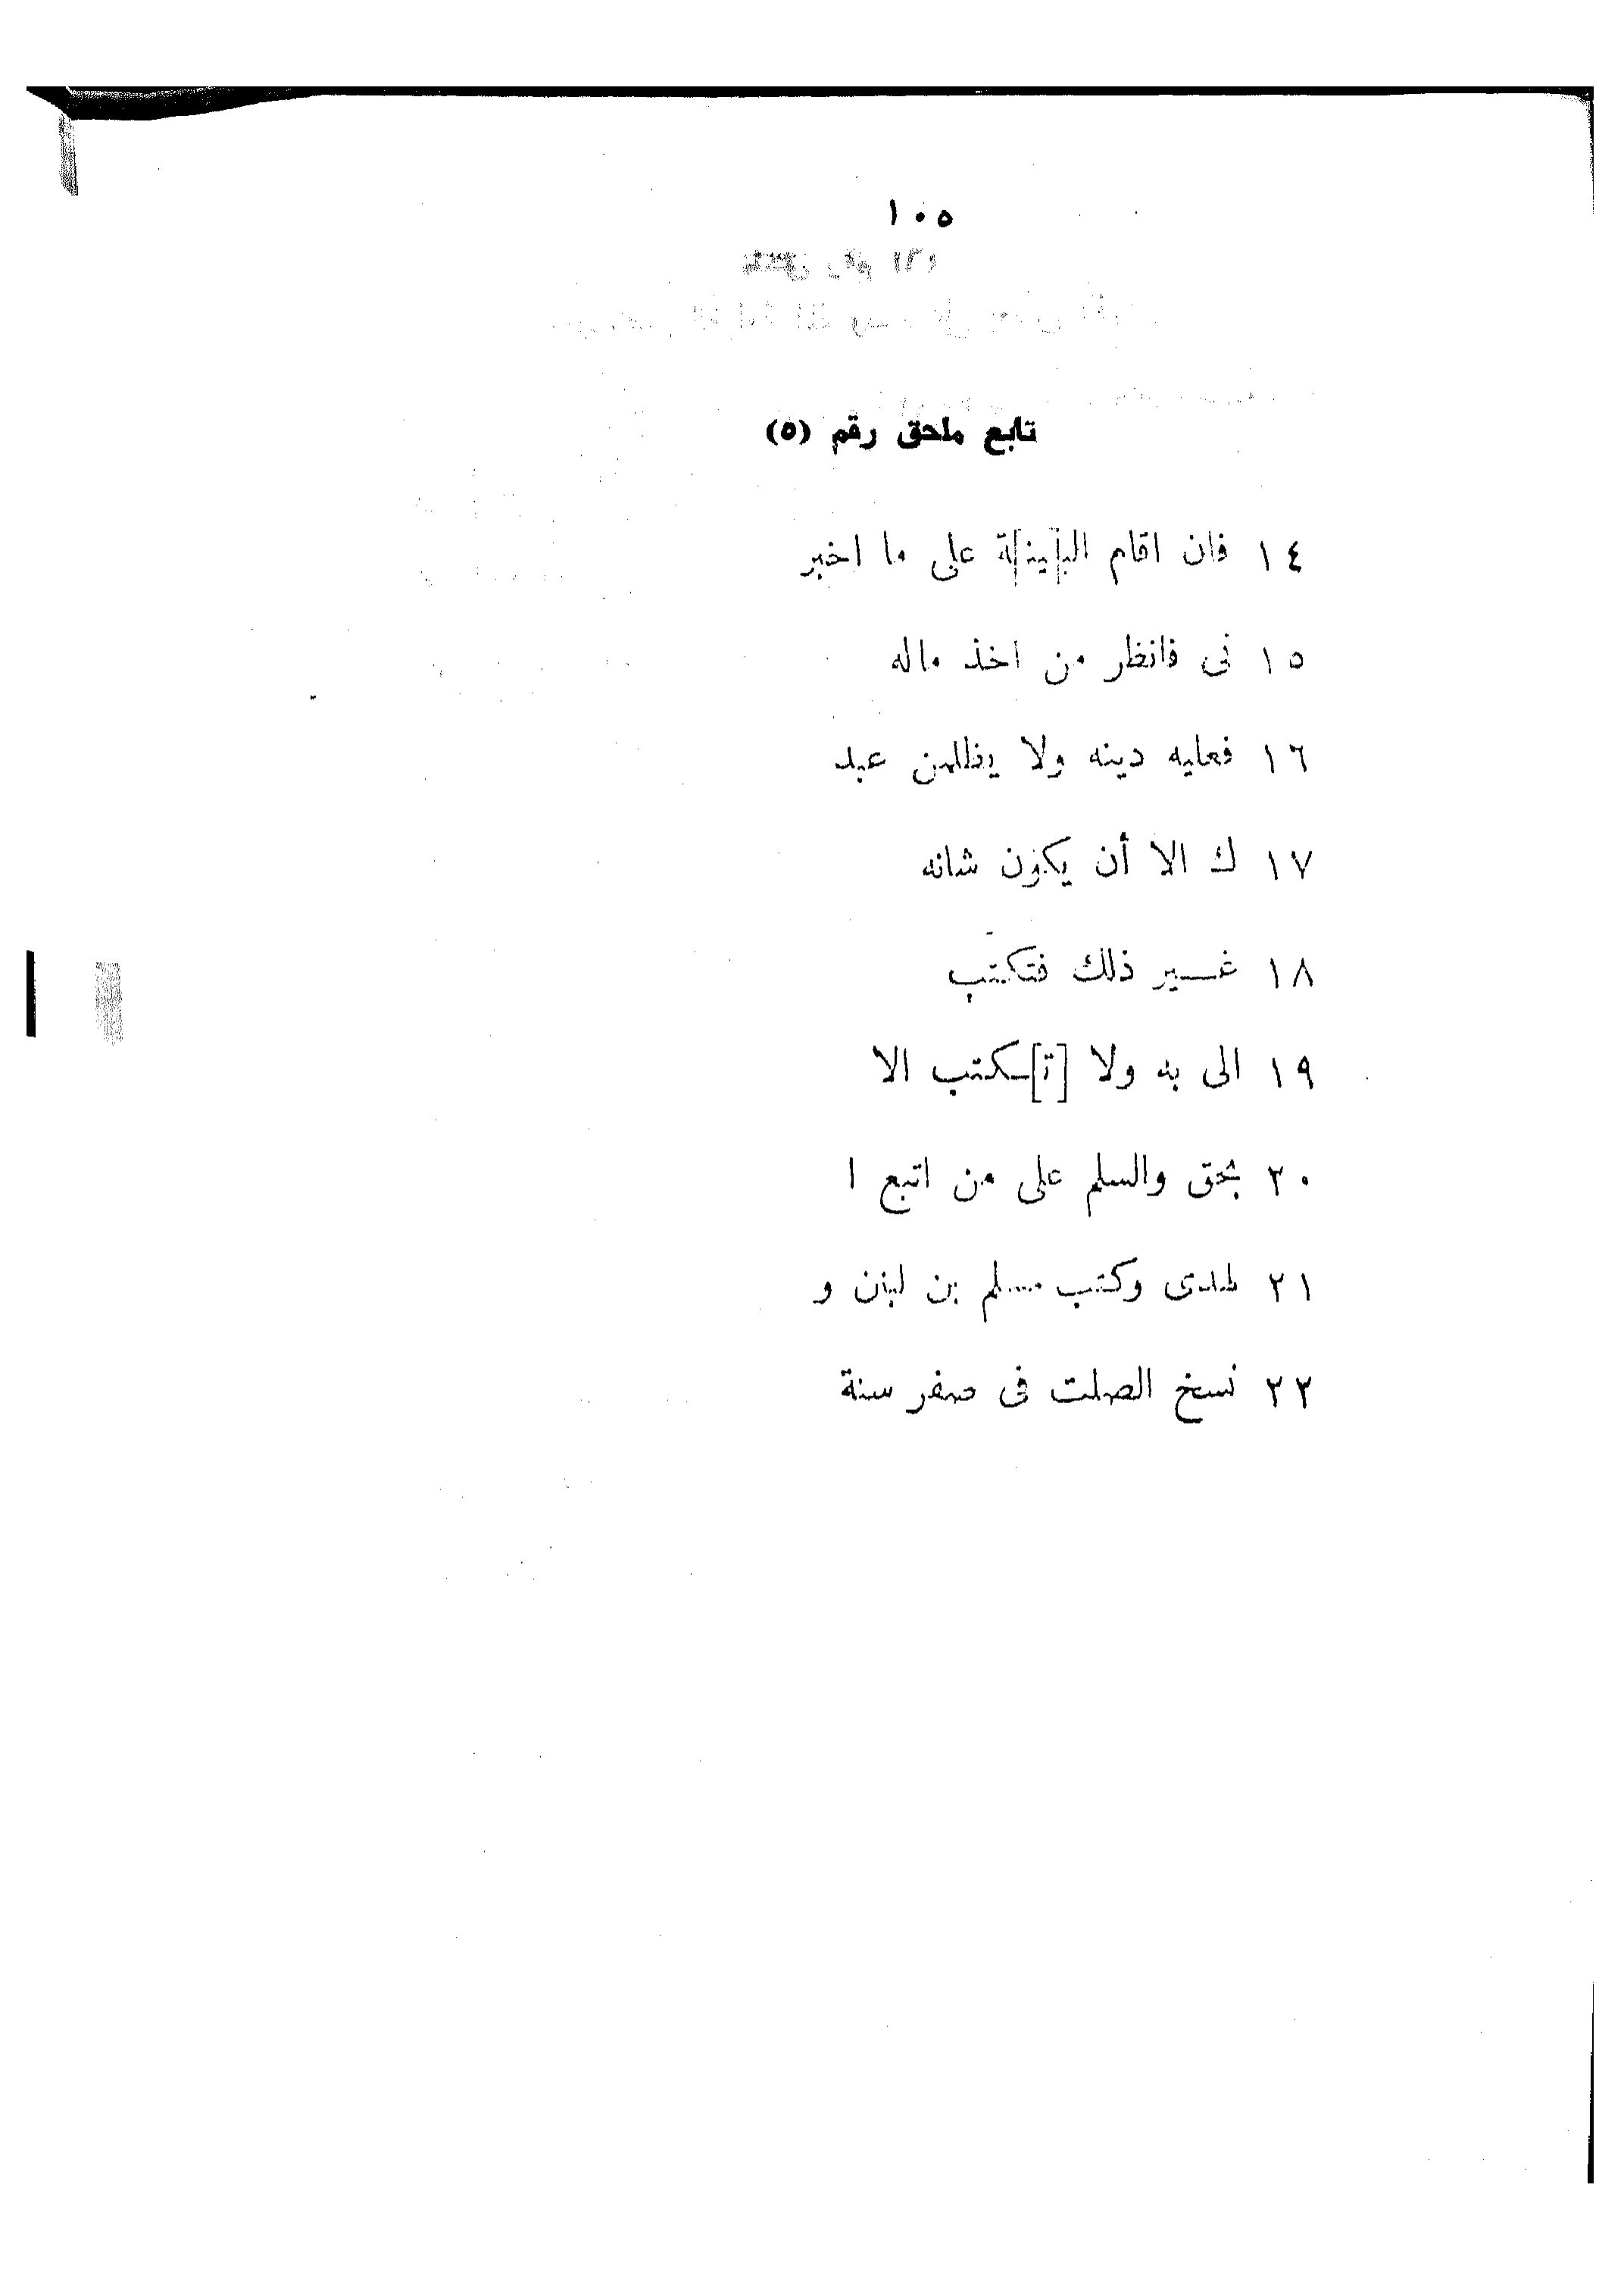 ١٠٥
تابع ملحق رقم (٥)
١٤ فان اقام الب[ين]ة على ما اخبر
١٥ نى فانظر من اخذ ماله
١٦ فعليه دينه ولا يظلمن عبد
١٧ ك الا أن يكون شانه
١٨ غير ذلك فتكتب
١٩ الى به ولا [ت]كتب الا
٢٠ بحق والسلم على من اتبع ا
٢١ لهدى وكتب مسلم بن لبنن و
٢٢ نسخ الصلت فى صفر سنة